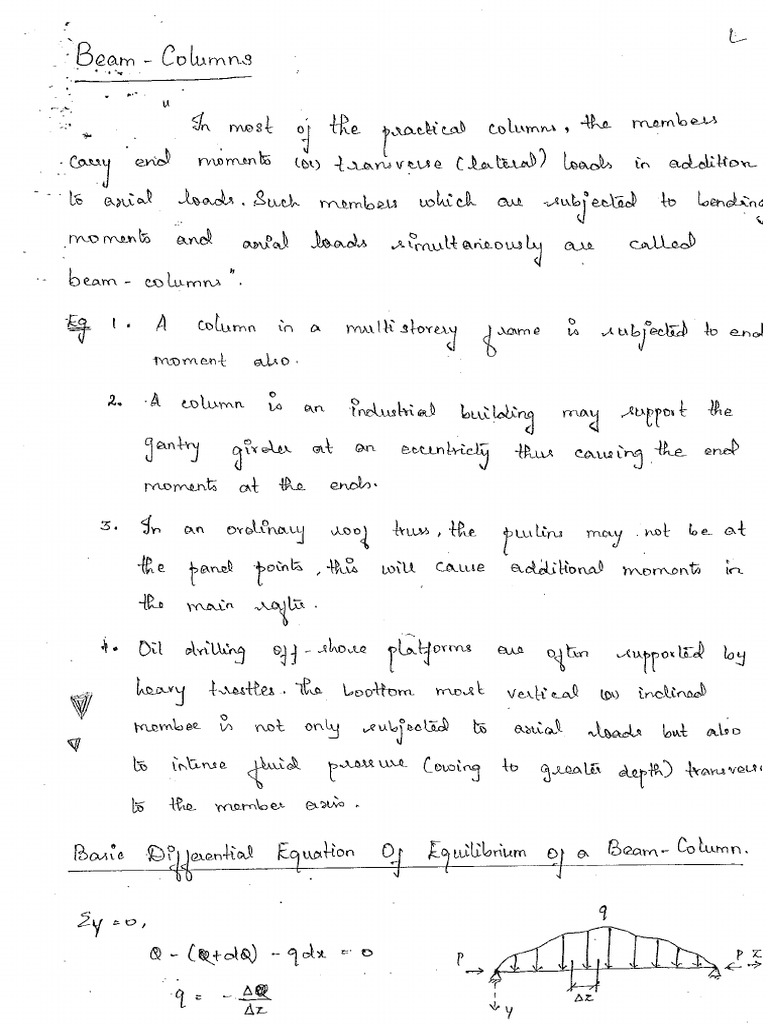 Beam - Columns
"In most of the practical columns, the members
carry end moments (or) transverse (lateral) loads in addition
to axial loads. Such members which are subjected to bending
moments and axial loads simultaneously are called
beam - columns".
Eg 1. A column in a multistorey frame is subjected to end
moment also.
2. A column is an industrial building may support the
gantry girder at an eccentricty thus causing the end
moments at the ends.
3. In an ordinary roof truss, the purlins may not be at
the panel points, this will cause additional moments in
the main rafter.
4. Oil drilling off-shore platforms are often supported by
heavy trestles. The boottom most vertical (or) inclined
member is not only subjected to axial loads but also
to intense fluid pressure (owing to greater depth) transverse
to the member axis.
Basic Differential Equation Of Equilibrium of a Beam-Column.
Σy = 0,
Q - (Q+dQ) - qdx = 0
q = - ΔQ/Δz
q
P
P z
Δz
y